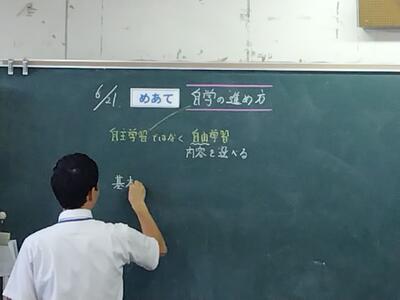 6/21 めあて 自学の進め方
自主学習ではなく 自由学習
内容を選べる
基本